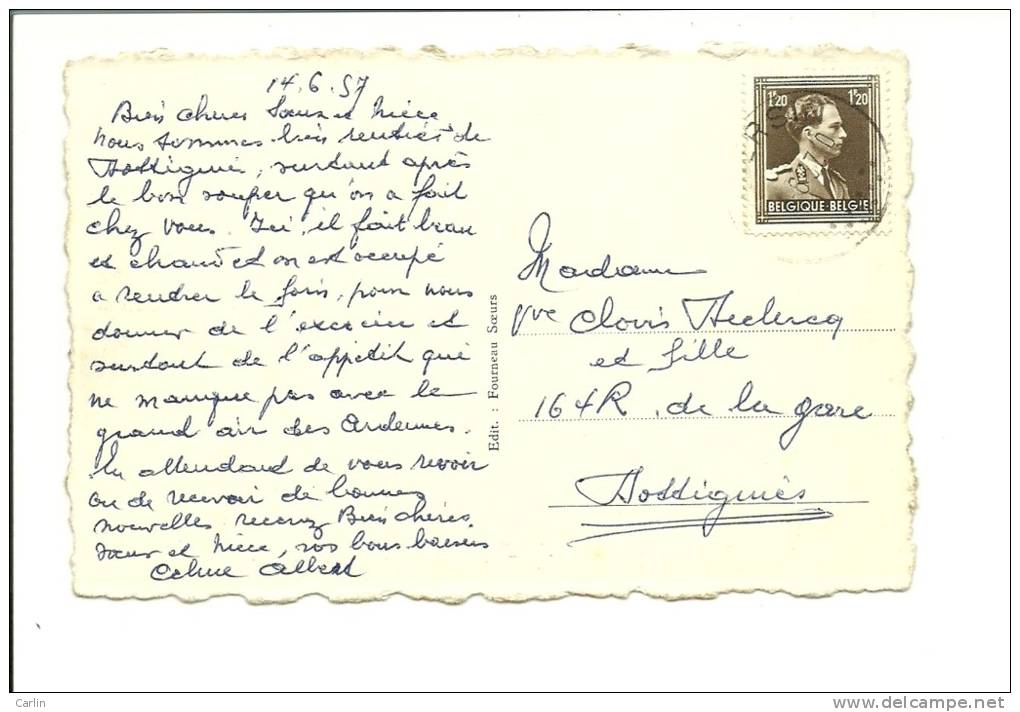 14.6.57
Bien chères Soeur et Nièce
nous sommes bien rentrés de
Dottignies, surtout après
le bon souper qu'on a fait
chez vous. Ici, il fait beau
et chaud et on est occupé
a rentrer le foin, pour nous
donner de l'exercice et
surtout de l'appetit qui
ne manque pas avec le
grand air des Ardennes.
En attendand de vous revoir
ou de recevoir de bonnes
nouvelles recevez Bien chères
soeur et Nièce, nos bons baisers
Celine Albert
Edit. : Fourneau Sœurs
1F20 1F20
BELGIQUE-BELGIE
RS
Madame
Vve Clovis
et fille
164 R. de la gare
Dottignies
Carlin
www.delcampe.net